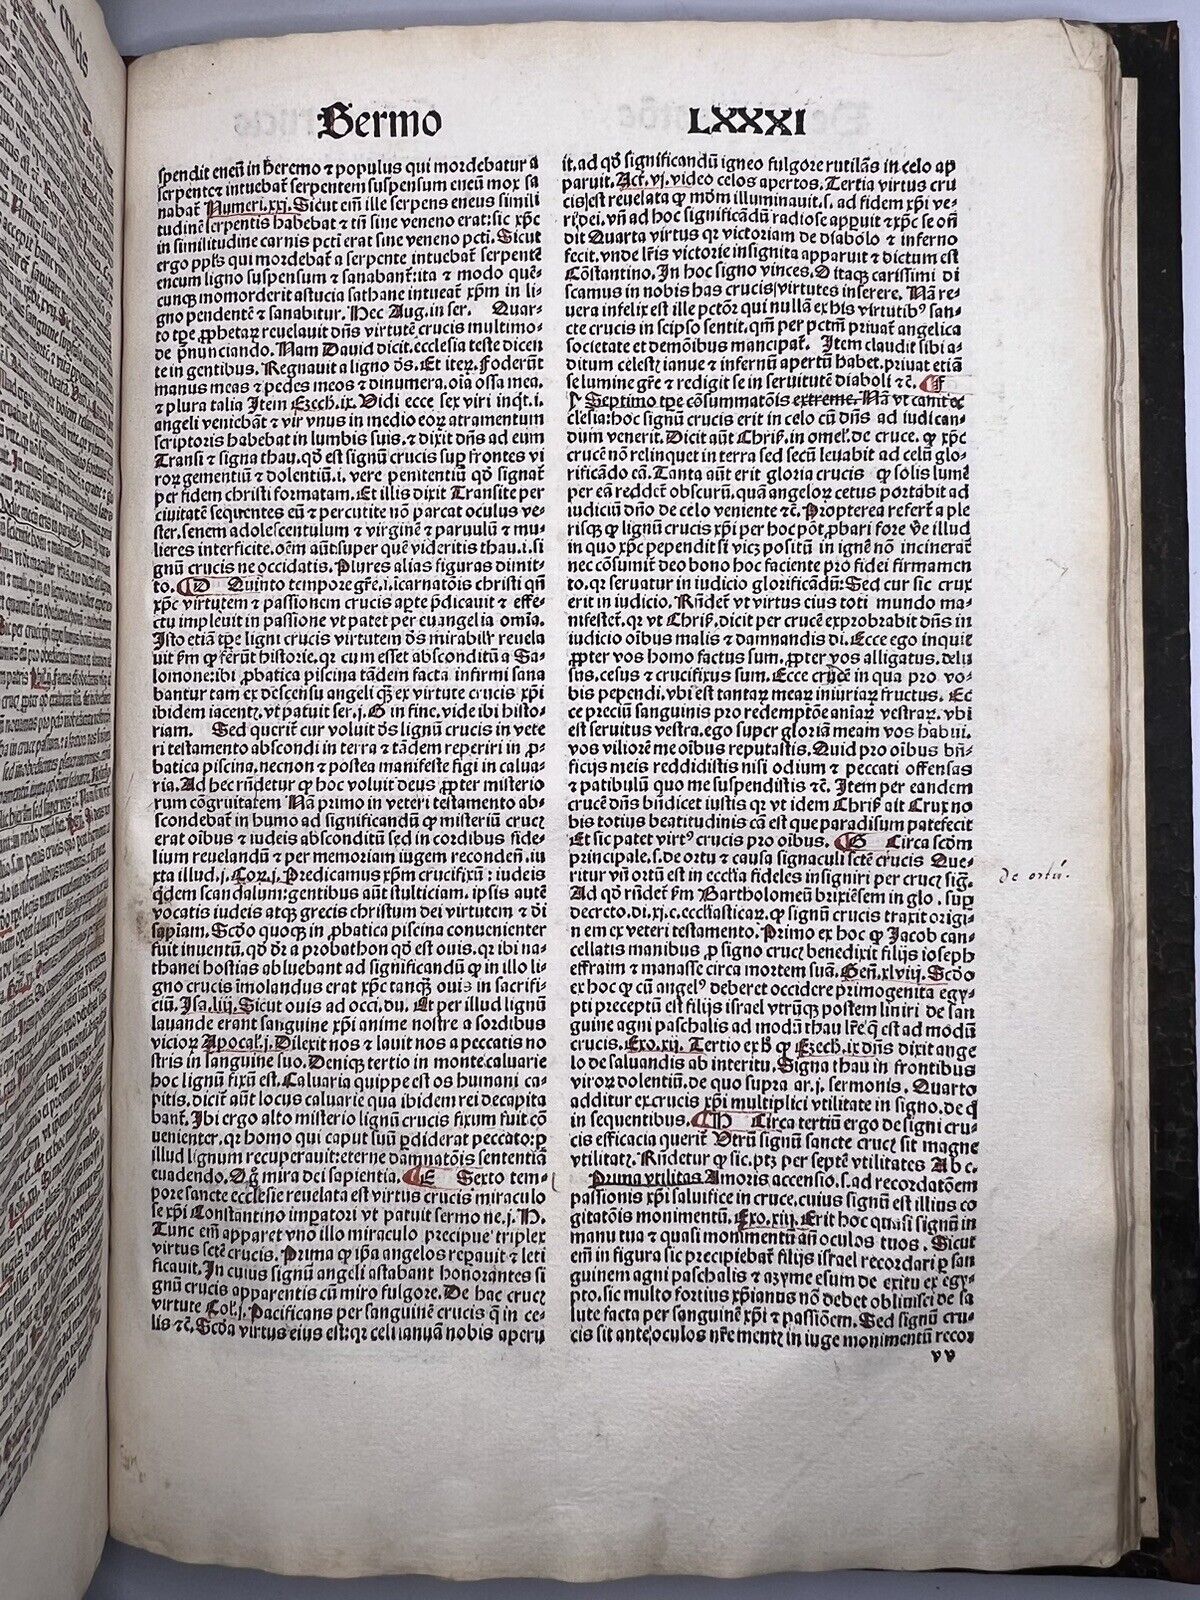 Sermo LXXXI
spendit eneũ in heremo ⁊ populus qui mordebatur a
serpente ⁊ intuebat᷑ serpentem suspensum eneũ mox sa
nabat᷑ Numeri.xxj. Sicut em̃ ille serpens eneus simili
tudinẽ serpentis habebat ⁊ tñ sine veneno erat: sic xp̃c
in similitudine carnis pcti erat sine veneno pcti. Sicut
ergo ppl's qui mordebat᷑ a serpente intuebat᷑ serpentẽ
eneum ligno suspensum ⁊ sanabant᷑: ita ⁊ modo quẽ-
cunqꝫ momorderit astucia sathane intueat᷑ xp̃m in li-
gno pendentẽ ⁊ sanabitur. Hec Aug. in ser. Quar-
to tp̃e ꝓphetaꝝ reuelauit dñs virtutẽ crucis multimo-
de p̃nunciando. Nam Dauid dicit. ecclesia teste dicen
te in gentibus. Regnauit a ligno ds̃. Et iteꝝ. Foderũt
manus meas ⁊ pedes meos ⁊ dinumera. oĩa ossa mea.
⁊ plura talia Item Ezech.ix. Vidi ecce sex viri inq̃t.i.
angeli veniebãt ⁊ vir vnus in medio eoꝝ atramentum
scriptoris habebat in lumbis suis. ⁊ dixit dñs ad eum
Transi ⁊ signa thau. qḋ est signũ crucis sup̱ frontes vi
roꝝ gementiũ ⁊ dolentiũ.i. vere penitentiũ qḋ signat᷑
per fidem christi formatam. Et illis dixit Transite per
ciuitatẽ sequentes eũ ⁊ percutite nõ parcat oculus ve-
ster. senem adolescentulum ⁊ virginẽ ⁊ paruulũ ⁊ mu-
lieres interficite. oẽm aũt super quẽ videritis thau.i.si
gnũ crucis ne occidatis. Plures alias figuras dimit-
to. D Quinto tempore gr̃e.i.icarnatõis christi qñ
xp̃c virtutem ⁊ passionem crucis aperte p̃dicauit ⁊ effe-
ctu impleuit in passione vt patet per euangelia omĩa.
Isto etiã tp̃e ligni crucis virtutem ds̃ mirabilr̃ reuela
uit ẜm ꝙ ferũt historie. qꝛ cum esset absconditũ a Sa-
lomone ibi ꝓbatica piscina tãdem facta infirmi sana
bantur tam ex descensu angeli qm̃ ex virtute crucis xp̃i
ibidem iacentꝭ. vt patuit ser.j. G in fine. vide ibi histo-
riam. Sed querit᷑ cur voluit ds̃ lignũ crucis in vete
ri testamento abscondi in terra ⁊ tãdem reperiri in ꝓ-
batica piscina. necnon ⁊ postea manifeste figi in calua-
ria. Ad hec rñdetur ꝙ hoc voluit deus ꝓpter misterio
rum cõgruitatem Nã primo in veteri testamento ab-
scondebat᷑ in humo ad significandũ ꝙ misteriũ crucꝭ
erat oĩbus ⁊ iudeis absconditũ sed in cordibus fide-
lium reuelandũ ⁊ per memoriam iugem recondeñ. iu
xta illud.j.Cor.j. Predicamus xp̃m crucifixũ: iudeis
qḋdem scandalum: gentibus aũt stulticiam. ipsis autẽ
vocatis iudeis atqꝫ grecis christum dei virtutem ⁊ di
sapiam. Scḋo quoqꝫ in ꝓbatica piscina conuenienter
fuit inuentũ. qḋ dr̃ a probathon qḋ est ouis. qꝛ ibi na-
thanei hostias abluebant ad significandũ ꝙ in illo li-
gno crucis imolandus erat xp̃c tanqꝫ ouis in sacrifi-
ciũ. Isa.liij. Sicut ouis ad occi.du. Et per illud lignũ
lauande erant sanguine xp̃i anime nostre a sordibus
vicioꝝ Apocal.j. Dilexit nos ⁊ lauit nos a peccatis no
stris in sanguine suo. Deniqꝫ tertio in monte caluarie
hoc lignũ fixũ est. Caluaria quippe est os humani ca-
pitis. dicit᷑ aũt locus caluarie qua ibidem rei decapita
bant᷑. Ibi ergo alto misterio lignũ crucis fixum fuit cõ
uenienter. qꝛ homo qui caput suũ ꝑdiderat peccato: ꝑ
illud lignum recuperauit: eterne damnatõis sententiã
euadendo. O mira dei sapientia. E Sexto tem-
pore sancte ecclesie reuelata est virtus crucis miraculo
se xp̃i Constantino imp̱atori vt patuit sermone.j. H.
Tunc em̃ apparet vno illo miraculo precipue triplex
virtus sctẽ crucis. Prima ꝙ ip̃a angelos rep̱auit ⁊ leti
ficauit. In cuius signũ angeli astabant honorantes si
gnũ crucis apparentis cũ miro fulgore. De hac crucꝭ
virtute Col.j. Pacificans per sanguinẽ crucis q̃ in ce-
lis ⁊c̃. Scḋa virtus eius est: qꝛ celi ianuã nobis aperu
it. ad qḋ significandũ igneo fulgore rutilãs in celo ap
paruit. Act.vj. video celos apertos. Tertia virtus cru
cis est reuelata ꝙ mom illuminauit.s. ad fidem xp̃i ve-
ri dei. vñ ad hoc significandũ radiose app̱uit ⁊ xp̃c se oñ
dit Quarta virtus qꝛ victoriam de diabolo ⁊ inferno
fecit. vnde lr̃is victorie insignita apparuit ⁊ dictum est
Cõstantino. In hoc signo vinces. O itaqꝫ carissimi di
scamus in nobis has crucis virtutes inserere. Nã re-
uera infelix est ille pctõr qui nullã ex his virtutibꝰ san-
cte crucis in seipso sentit. qm̃ per pctm̃ priuat᷑ angelica
societate et demõibus mancipat᷑. Item claudit sibi a-
ditum celestꝭ ianue ⁊ infernũ apertũ habet. priuat etiã
se lumine gr̃e ⁊ redigit se in seruitutẽ diaboli ⁊c̃. F
Septimo tp̃e cõsummatõis extreme. Nã vt canit ec
clesia: hoc signũ crucis erit in celo cũ dñs ad iudican-
dum venerit. Dicit aũt Chriß. in omel. de cruce. ꝙ xp̃c
crucẽ nõ relinquet in terra sed secũ leuabit ad celũ glo-
rificãdo cã. Tanta aũt erit gloria crucis ꝙ solis lumẽ
per eã reddet᷑ obscurũ. quã angeloꝝ cetus portabit ad
iudiciũ dño de celo veniente ⁊c̃. Propterea refert᷑ a ple
risqꝫ ꝙ lignũ crucis xp̃i per hoc põt ꝓbari fore v̓e illud
in quo xp̃c pependit si vicꝫ positũ in ignẽ nõ incinerat᷑
nec cõsumit᷑ deo bono hoc faciente pro fidei firmamen
to. qꝛ seruatur in iudicio glorificãdũ: Sed cur sic crux
erit in iudicio. Rñdet᷑ vt virtus eius toti mundo ma-
nifestet᷑. qꝛ vt Chriß. dicit per crucẽ exprobrabit dñs in
iudicio oĩbus malis ⁊ damnandis di. Ecce ego inquit
ꝓpter vos homo factus sum. ꝓpter vos alligatus. delu
sus. cesus ⁊ crucifixus sum. Ecce crucẽ in qua pro vo-
bis pependi. vbi est tantaꝝ meaꝝ iniuriaꝝ fructus. Ec
ce preciũ sanguinis pro redemptõe aniaꝝ vestraꝝ. vbi
est seruitus vestra. ego super gloriam meam vos habui.
vos viliorẽ me oĩbus reputastis. Quid pro oĩbus bñ-
ficijs meis reddidistis nisi odium ⁊ peccati offensas
⁊ patibulũ quo me suspendistis ⁊c̃. Item per eandem
crucẽ dñs bñdicet iustis qꝛ vt idem Chriß ait Crux no
bis totius beatitudinis cã est que paradisum patefecit
Et sic patet virtꝰ crucis pro oĩbus. G Circa scḋm
principale.s. de ortu ⁊ causa signaculi sctẽ crucis Que-
ritur vñ ortũ est in ecclĩa fideles insigniri per crucꝭ sig̃.
Ad qḋ rñdet᷑ ẜm Bartholomeũ brixiẽsem in glo. sup̱
decreto.di.xj.c.ecclesiasticaꝝ. ꝙ signũ crucis traxit origi
nem ex veteri testamento. Primo ex hoc ꝙ Jacob can-
cellatis manibus ꝓ signo crucꝭ benedixit filijs ioseph
effraim ⁊ manasse circa mortem suã. Geñ.xlviij. Scḋo
ex hoc ꝙ cũ angelꝰ deberet occidere primogenita egy-
pti preceptũ est filijs israel vtrũqꝫ postem liniri de san-
guine agni paschalis ad modũ thau lr̃e q̃ est ad modũ
crucis. Exo.xij. Tertio ex hͦ ꝙ Ezech.ix dñs dixit ange
lo de saluandis ab interitu. Signa thau in frontibus
viroꝝ dolentiũ. de quo supra ar.j. sermonis. Quarto
additur ex crucis xp̃i multiplici vtilitate in signo. de q̃
in sequentibus. H Circa tertiũ ergo de signi cru-
cis efficacia querit᷑ Vtrũ signũ sancte crucꝭ sit magne
vtilitatꝭ. Rñdetur ꝙ sic. ptꝫ per septẽ vtilitates A b c.
Prima vtilitas Amoris accensio.s. ad recordatõem
passionis xp̃i saluifice in cruce. cuius signũ est illius co
gitatõis monimentũ. Exo.xiij. Erit hoc quasi signũ in
manu tua ⁊ quasi monimentũ añ oculos tuos. Sicut
em̃ in figura sic precipiebat᷑ filijs israel recordari ꝑ san
guinem agni paschalis ⁊ azyme esum de exitu ex egy-
pto. sic multo fortius xp̃ianus nõ debet obliuisci de sa
lute facta per sanguinẽ xp̃i ⁊ passiõem. Sed signũ cru-
cis sit ante oculos nr̃e mentꝭ in iuge monimentũ recoꝛ
vv
de ortu.